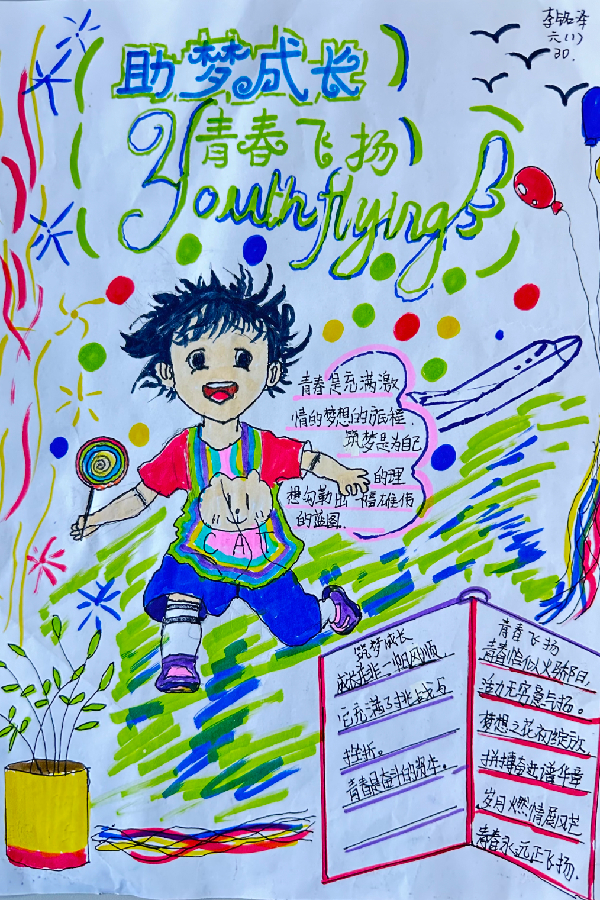 李铭泽
六(1)
30.
助梦成长
青春飞扬
Youth flying
青春是充满激
情的梦想的旅程.
筑梦是为自己
的理
想勾勒出一幅雄伟
的蓝图.
CAT
筑梦成长
成长并非一帆风顺.
它充满了挑战与
挫折。
青春是奋斗的
青春飞扬
青春恰似火骄阳
活力无穷意气扬。
梦想之花初绽放
拼搏奋进谱华章
岁月燃情展风芒
青春永远正飞扬.